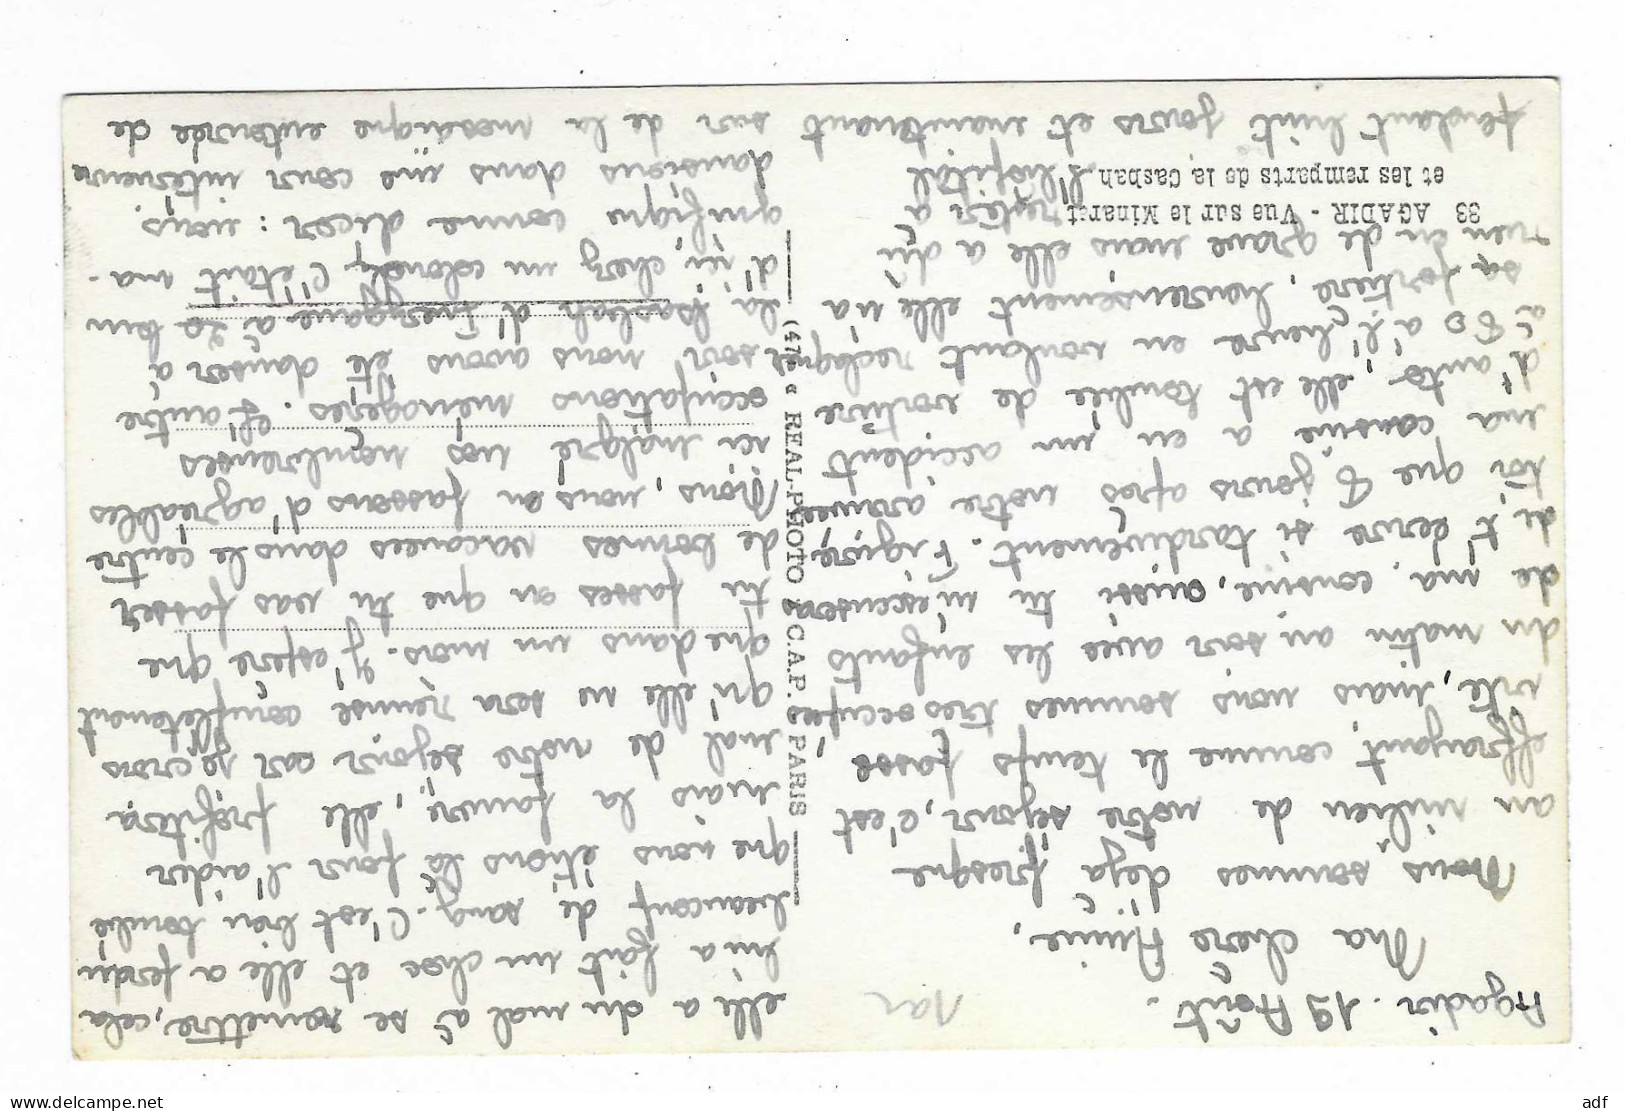 Agadir. 19 Août.
Ma chère Annie,
Nous sommes déjà presque
au milieu de notre séjour, c'est
effrayant comme le temps passe
vite, mais nous sommes très occupées
du matin au soir avec les enfants
de ma cousine, aussi tu m'excuseras
de t'écrire si tardivement. Figure
toi que 8 jours après notre arrivée
ma cousine a eu un accident
d'auto, elle est tombée de voiture
à 80 à l'heure en voulant reclaquer
sa portière, heureusement elle n'a
rien eu de grave mais elle a dû
rester à
l'hôpital
pendant huit jours et maintenant
33 AGADIR - Vue sur le Minaret
et les remparts de la Casbah.
elle a du mal à se remettre, cela
lui a fait un choc et elle a perdu
beaucoup de sang. C'est bien tombé
que nous étions là pour l'aider
mais la pauvre, elle profitera
mal de notre séjour car je crois
qu'elle ne sera remise complètement
que dans un mois. J'espère que
tu passes ou que tu vas passer
de bonnes vacances dans le centre
Nous, nous en passons d'agréables
ici malgré nos nombreuses
occupations ménagères. L'autre
soir nous avons été danser à
la kasbah d' à 20 km
d'ici, chez un colonel, C'était ma-
gnifique comme décor : nous
dansions dans une cour intérieure
sur de la mosaïque entourée de
(47) « REAL-PHOTO » C.A.P. PARIS
delcampe.net
adf